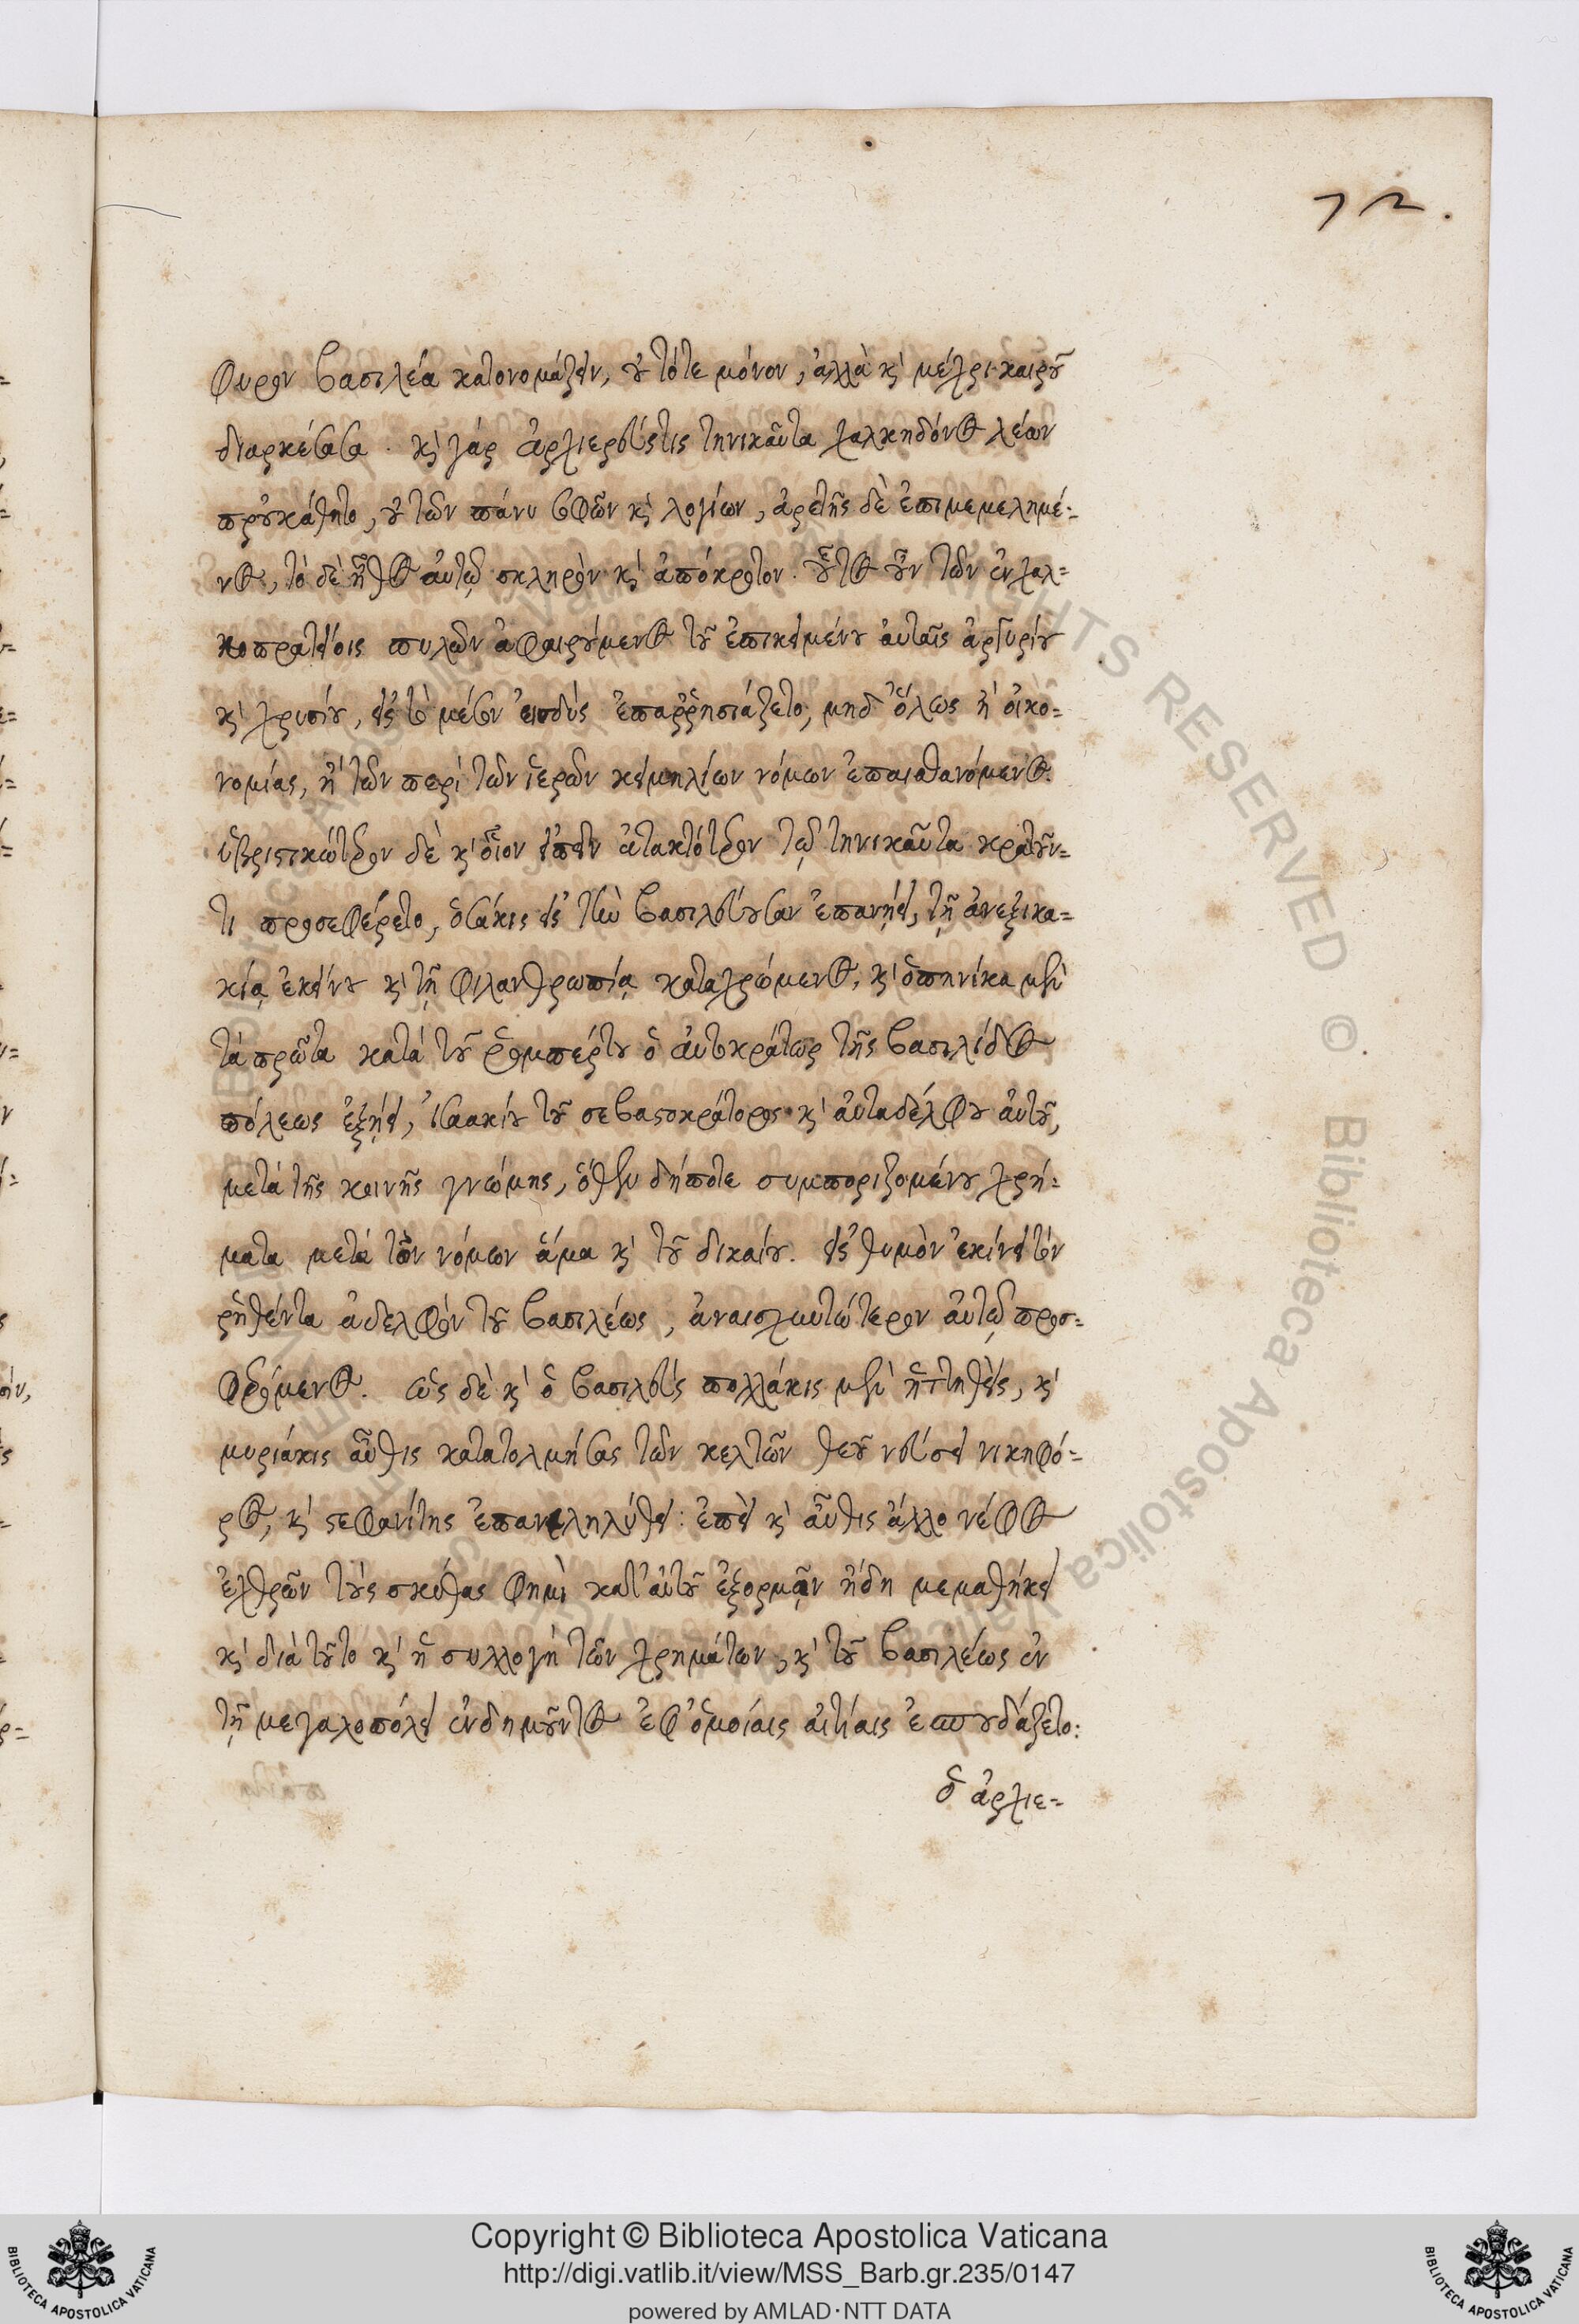 72.
φυρον βασιλέα κατονομάζειν, οὐ τότε μόνον, ἀλλὰ κ μέχρι καιροῦ
διαρκέσασα. κ γάρ ἀρχιερεύς τις τηνικαῦτα χαλκηδόνος λέων
προὐκάθητο, οὐ τῶν πάνυ σοφῶν κ λογίων, ἀρετῆς δὲ ἐπιμεμελημέ-
νος, τὸ δὲ ἦθος αὐτῷ σκληρὸν κ ἀπόκροτον. οὗτος οὖν τῶν ἐν χαλ-
κοπρατείοις πυλῶν ἀφαιρούμενος τοῦ ἐπικειμένου αὐταῖς ἀργυρίου
κ χρυσίου, εἰς τὸ μέσον εἰσδὺς ἐπαῤῥησιάζετο, μηδ' ὅλως ἢ οἰκο-
νομίας, ἢ τῶν περὶ τῶν ἱερῶν κειμηλίων νόμων ἐπαισθανόμενος.
ὑβριστικώτερον δὲ κ οἷον εἰπεῖν ἀτακτότερον τῷ τηνικαῦτα κρατοῦν-
τι προσεφέρετο, ὁσάκις εἰς τὴν βασιλεύουσαν ἐπανῄει, τῇ ἀνεξικα-
κίᾳ ἐκείνου κ τῇ φιλανθρωπίᾳ καταχρώμενος, κ ὁπηνίκα μὲν
τὰ πρῶτα κατὰ τοῦ ῥομπέρτου ὁ αὐτοκράτωρ τῆς βασιλίδος
πόλεως ἐξῄει, ἰσαακίου τοῦ σεβαστοκράτορος κ αὐταδέλφου αὐτοῦ,
μετὰ τῆς κοινῆς γνώμης, ὅθεν δήποτε συμποριζομένου χρή-
ματα μετὰ τῶν νόμων ἅμα κ τοῦ δικαίου. εἰς θυμὸν ἐκίνει τὸν
ῥηθέντα ἀδελφὸν τοῦ βασιλέως, ἀναισχυντώτερον αὐτῷ προσ-
φερόμενος. ὡς δὲ κ ὁ βασιλεύς πολλάκις μὲν ἡττηθεὶς, κ
μυριάκις αὖθις κατατολμήσας τῶν κελτῶν θεοῦ νεύσει νικηφό-
ρος, κ στεφανίτης ἐπανεληλύθει: ἐπεὶ κ αὖθις ἄλλο νέφος
ἐχθρῶν τοὺς σκύθας φημὶ κατ' αὐτοῦ ἐξορμᾷν ἤδη μεμαθήκει
κ διὰ τοῦτο κ ἡ συλλογὴ τῶν χρημάτων, κ τοῦ βασιλέως ἐν
τῇ μεγαλοπόλει ἐνδημοῦντος ἐφ' ὁμοίαις αἰτίαις ἐσπουδάζετο:
ὁ ἀρχιε-
Copyright © Biblioteca Apostolica Vaticana
http://digi.vatlib.it/view/MSS_Barb.gr.235/0147
powered by AMLAD·NTT DATA